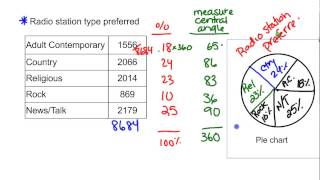 * Radio station type preferred
%
measure
central
angle
Adult Contemporary 1556
8684 .18 x360 65
Country 2066 24 86
Religious 2014 23 83
Rock 869 10 36
News/Talk 2179 25 90
8684 100% 360
Radio station
Preferre
Ctry
24%
A.C.
18%
Rel
23%
Rock
10%
N/T
25%
Pie chart